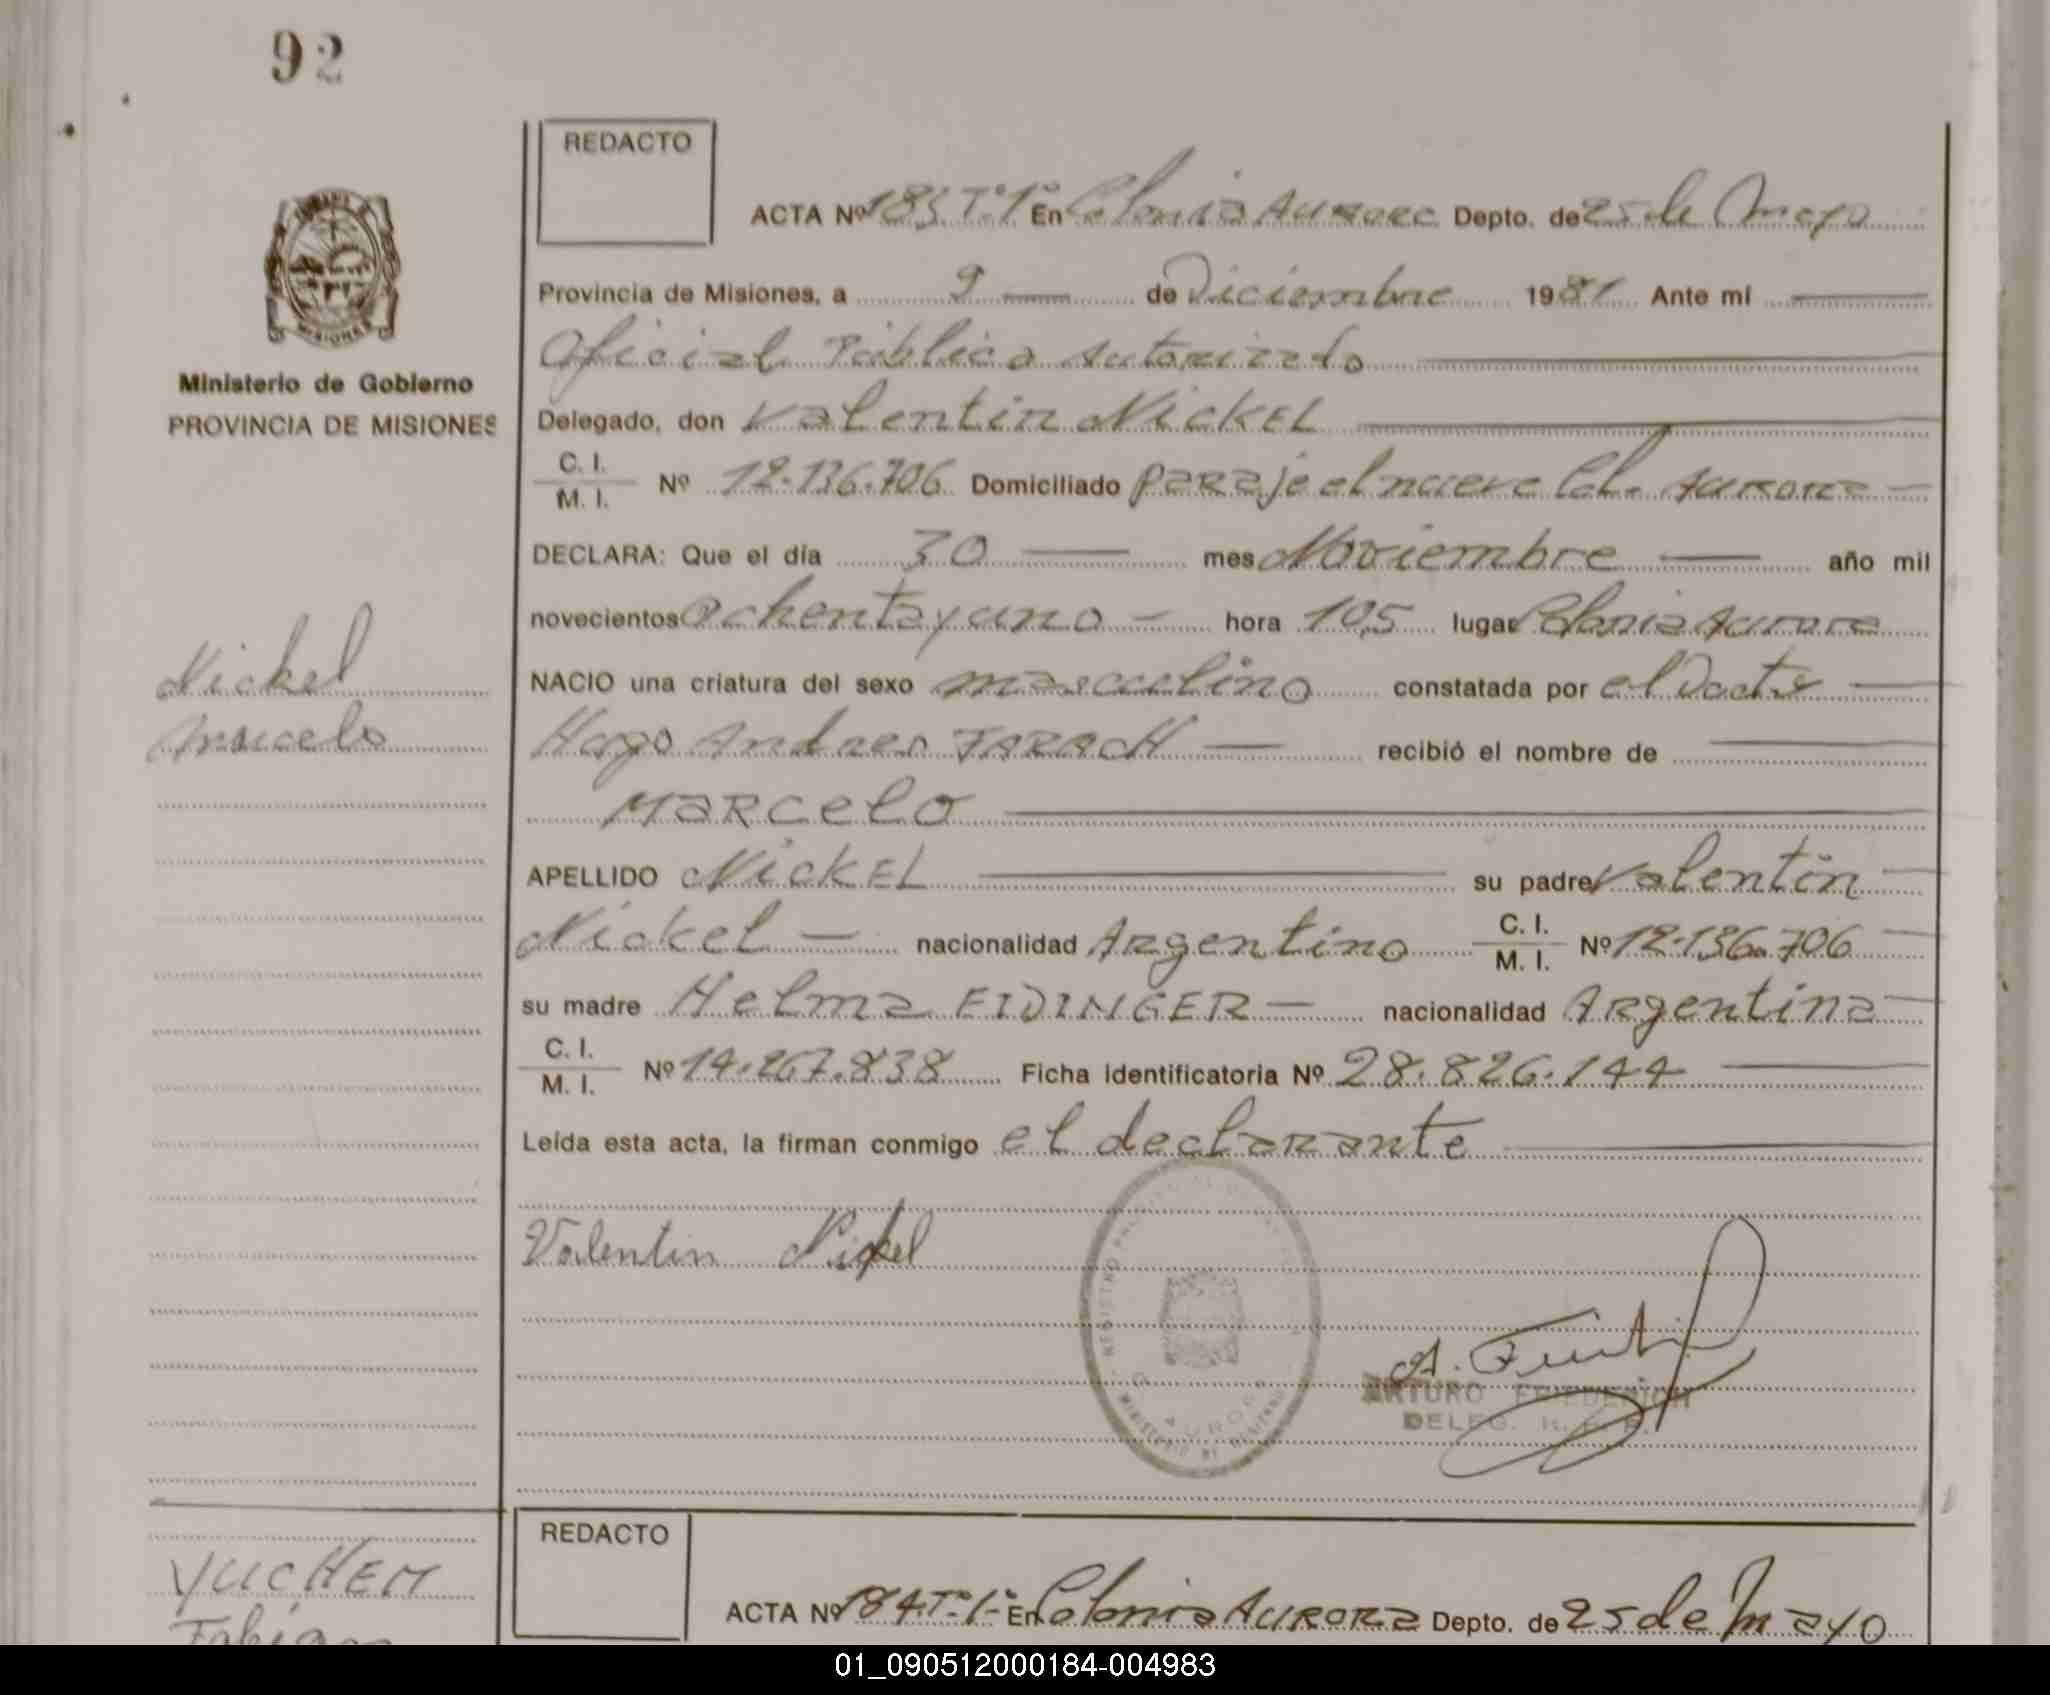 92
REDACTO
ACTA Nº 183 Tº 1º En Colonia Aurora Depto. de 25 de Mayo
Provincia de Misiones, a 9 de Diciembre 1981 Ante mí
Oficial Público Autorizado
Ministerio de Gobierno
PROVINCIA DE MISIONES
Delegado, don Valentin Nickel
C. I.
M. I. Nº 12.136.706 Domiciliado paraje el nueve Col. Aurora
DECLARA: Que el día 30 mes Noviembre año mil
novecientos ochenta y uno hora 10,5 lugar Colonia Aurora
Nickel
Marcelo
NACIO una criatura del sexo masculino constatada por el Doctor
Hugo Andres FARACH recibió el nombre de
Marcelo
APELLIDO NickEL su padre Valentin
Nickel nacionalidad Argentino C. I.
M. I. Nº 12.136.706
su madre Helma EIDINGER nacionalidad Argentina
C. I.
M. I. Nº 14.267.838 Ficha identificatoria Nº 28.826.144
Leída esta acta, la firman conmigo el declarante
Valentin Nickel
ARTURO FRIEDERICH
DELEG. R. P. P.
YUCHEM
Fabian
REDACTO
ACTA Nº 184 Tº 1º En Colonia AURORA Depto. de 25 de Mayo
01_090512000184-004983